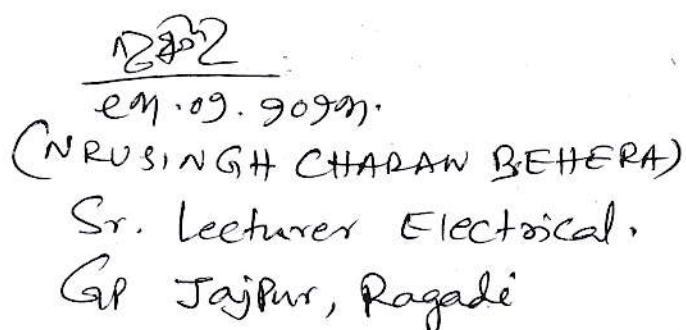 (NRUSINGH CHARAN BEHERA)
Sr. Lecturer Electrical.
GP Jajpur, Ragadi